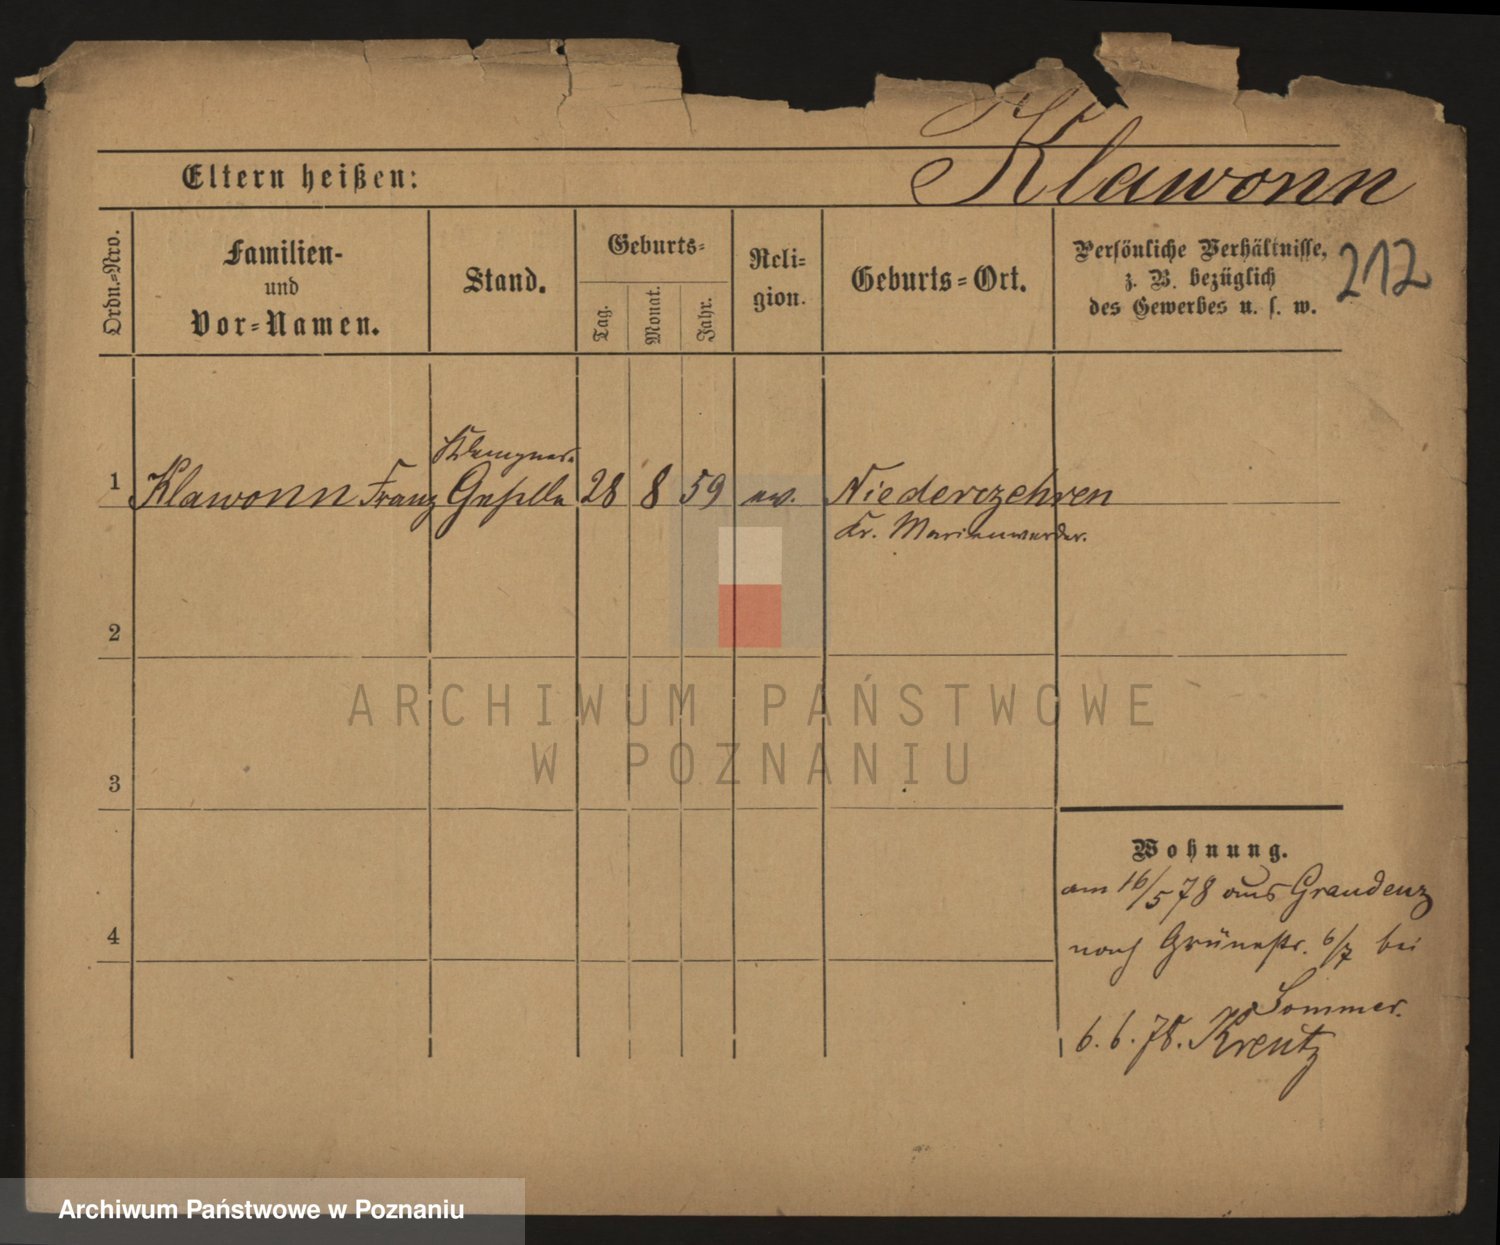 Klawonn
Eltern heißen:
Ordn.=Nro.
Familien-
und
Vor=Namen.
Stand.
Geburts=
Tag.
Monat.
Jahr.
Reli=
gion.
Geburts=Ort.
Persönliche Verhältnisse,
z. B. bezüglich
des Gewerbes u. s. w.
212
Klempner
1 Klawonn Franz Geselle 28 8 59 ev. Niederzehren
Kr. Marienwerder.
2
3
4
Wohnung.
am 16/5 78 aus Graudenz
nach Grünestr. 6/7 bei
Sommer.
6. 6. 78. Kreutz
ARCHIWUM PAŃSTWOWE
W POZNANIU
Archiwum Państwowe w Poznaniu